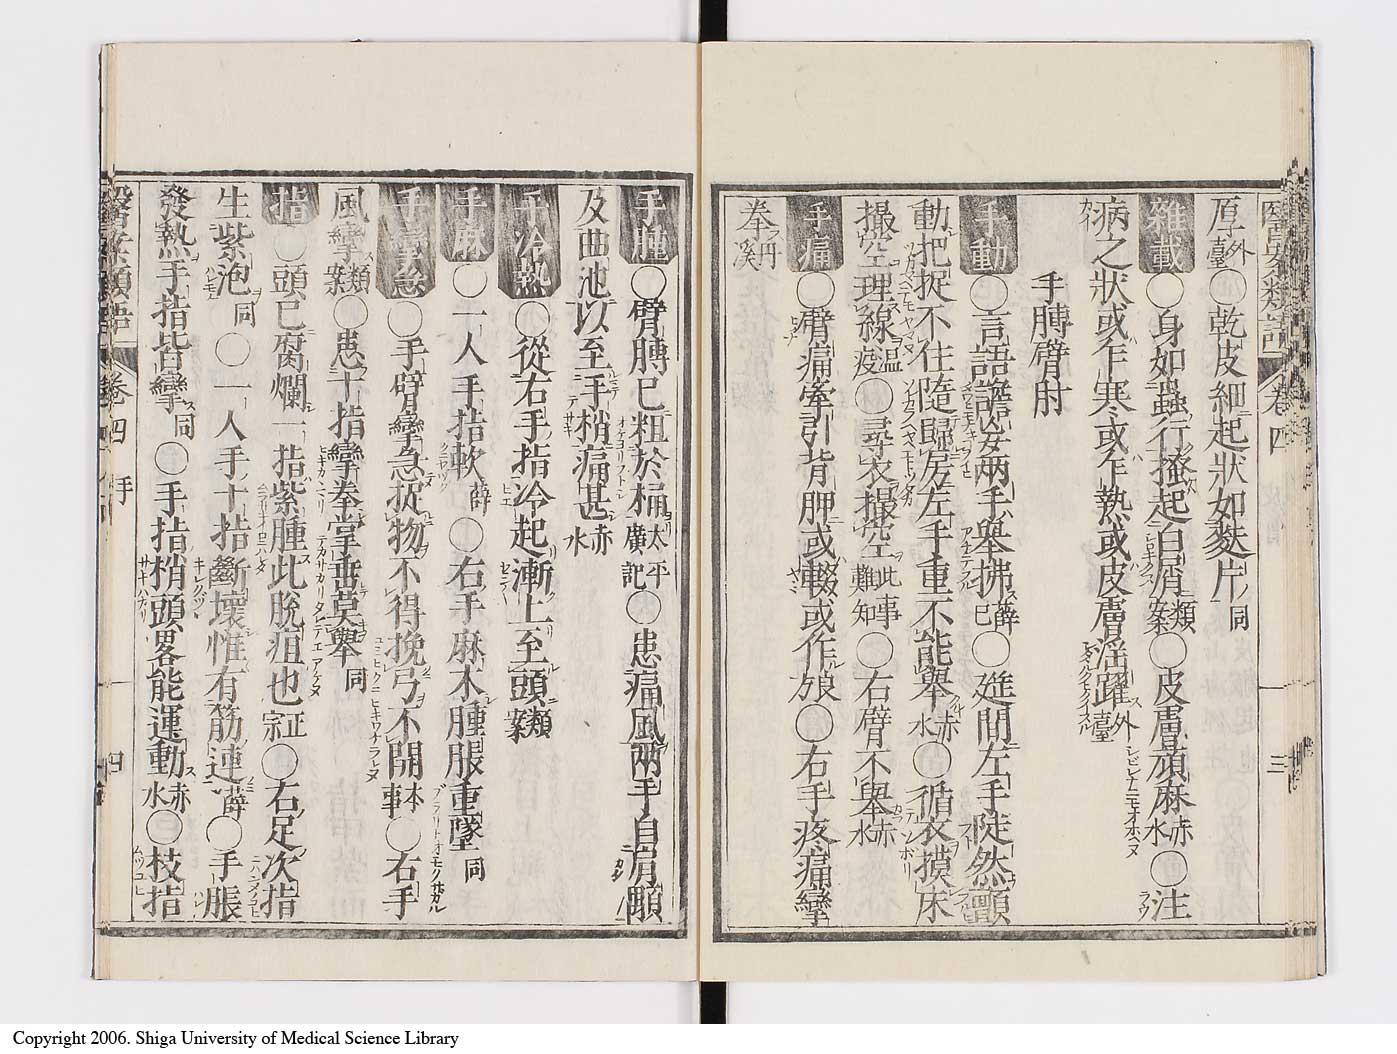 醫案類語 卷四 三
厚外臺〇乾皮細起狀如麩片同
雜載〇身如蟲行搔起白屑類案〇皮膚頑麻赤水〇注
病之狀或乍寒或乍熱或皮膚淫躍外臺
手膊臂肘
手動〇言語譫妄兩手舉拂薛己〇筵間左手陡然顫
動把捉不住隨歸房左手重不能舉赤水〇循衣摸床
撮空理線溫疫〇尋衣撮空此事難知〇右臂不舉赤水
手痛〇臂痛牽引背胛或輟或作痕〇右手疼痛攣
拳丹溪
手腫〇臂膊已粗於桶太平廣記〇患痛風兩手自肩顒
及曲池以至手梢痛甚赤水
手冷熱〇從右手指冷起漸上至頭類案
手麻〇一人手指軟薛〇右手麻木腫脹重墜同
手攣急〇手臂攣急捉物不得挽弓不開本事〇右手
風攣類案〇患十指攣拳掌垂莫舉同
指〇頭已腐爛一指紫腫此脫疽也正宗〇右足次指
生紫泡同〇一人手十指斷壞惟有筋連薛〇手脹
發熱手指皆攣同〇手指梢頭畧能運動赤水〇枝指
醫案類語 卷四 手 四
Copyright 2006. Shiga University of Medical Science Library